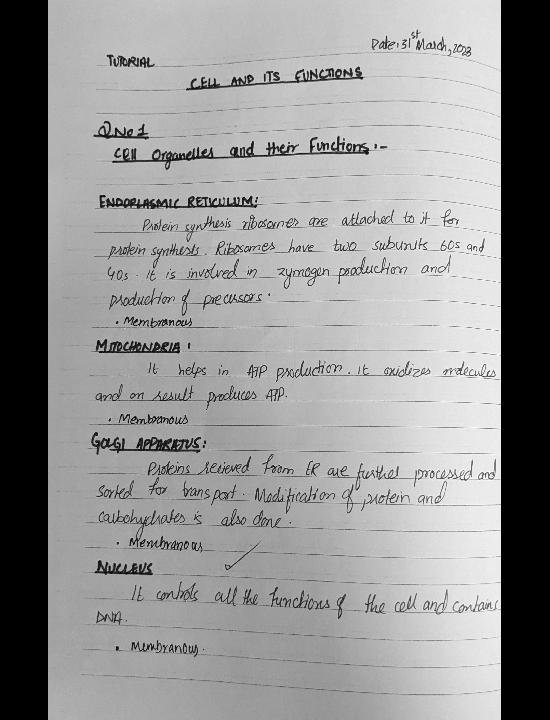 Date: 31st March, 2023
TUTORIAL
CELL AND ITS FUNCTIONS
Q No 1
Cell Organelles and their Functions :-
ENDOPLASMIC RETICULUM:
Protein synthesis ribosomes are attached to it for
protein synthesis. Ribosomes have two subunits 60s and
40s. it is involved in zymogen production and
production of precursors.
• Membranous
MITOCHONDRIA :
It helps in ATP production. it oxidizes molecules
and on result produces ATP.
• Membranous
GOLGI APPARATUS:
Proteins recieved from ER are further processed and
sorted for transport. Modification of protein and
carbohydrates is also done.
• Membranous
NUCLEUS
It controls all the functions of the cell and contains
DNA.
• Membranous.